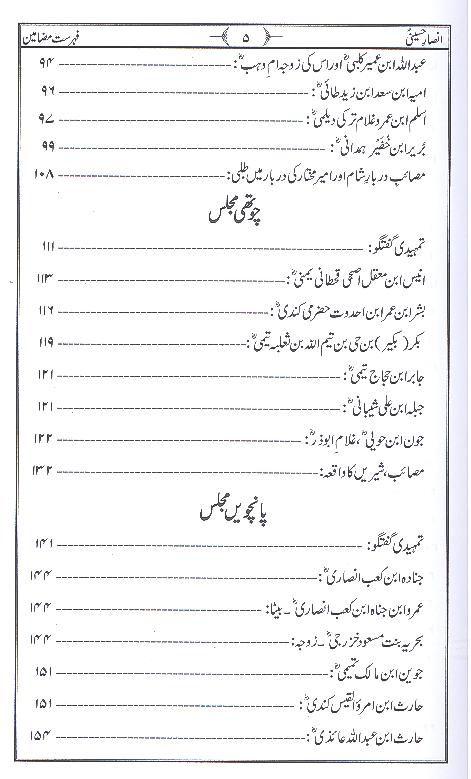 انصارِ حسینیؑ ﴿ ۵ ﴾ فہرست مضامین
عبداللہ ابن عمیر کلبیؓ اور اس کی زوجہ ام وہبؓ: ۹۴
امیہ ابن سعد ابن زید طائیؓ: ۹۶
اسلم ابن عمرو غلام ترکی دیلمیؓ: ۹۷
بُریر ابن خُضَیر ہمدانیؓ: ۹۹
مصائب دربارِ شام اور امیر مختار کی دربار میں طلبی: ۱۰۸
چوتھی مجلس
تمہیدی گفتگو: ۱۱۱
انیس ابن معقل اصحی قحطانی یمنیؓ: ۱۱۳
بشر ابن عمر ابن احدوث حضرمی کندیؓ: ۱۱۶
بکر (بکیر) بن حی بن تیم اللہ بن ثعلبہ تیمیؓ: ۱۱۹
جابر ابن حجاج تیمیؓ: ۱۲۱
جبلہ ابن علی شیبانیؓ: ۱۲۱
جون ابن حوییؓ، غلامِ ابوذرؓ: ۱۲۲
مصائب، شیریں کا واقعہ: ۱۳۲
پانچویں مجلس
تمہیدی گفتگو: ۱۴۱
جنادہ ابن کعب انصاریؓ: ۱۴۴
عمرو ابن جناہ ابن کعب انصاریؓ۔ بیٹا: ۱۴۴
بحریہ بنت مسعود خزرجیؓ۔ زوجہ: ۱۴۴
جوین ابن مالک تمیمیؓ: ۱۵۱
حارث ابن امرؤ القیس کندیؓ: ۱۵۱
حارث ابن عبداللہ عائذیؓ: ۱۵۴